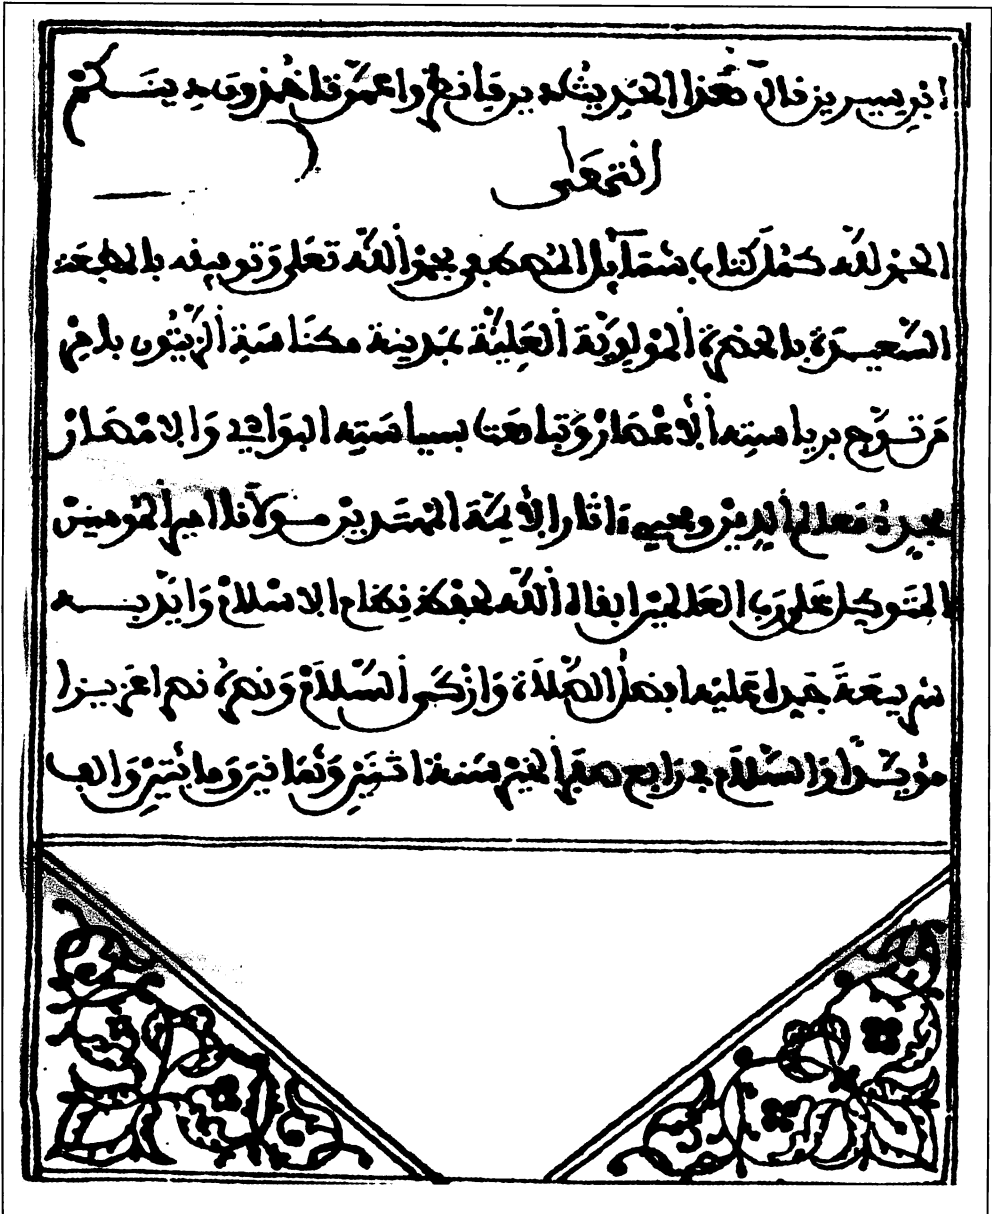 ابن سيرين قال هذا الحديث دين فانظروا عمن تاخذون دينكم
انتهى
الحمد لله كمل كتاب شمايل المصطفى بحمد الله تعلى وتوفيقه بالمطبعة
السعيدة بالحضرة المولوية العلية بمدينة مكناسة الزيتون بامر
من توج برياسته الاعصار وتباهت بسياسته البوادي والامصار
مجدد معالم الدين ومحيي ءاثار الأئمة المهتدين مولانا امير المومنين
المتوكل على رب العالمين ابقاه الله لحفظ نظام الاسلام وتاييد
شريعة جده عليه افضل الصلاة وازكى السلام ونصره نصرا عزيزا
مؤبدا والسلام في رابع صفر الخير سنة اثنين وثمانين ومائتين والف